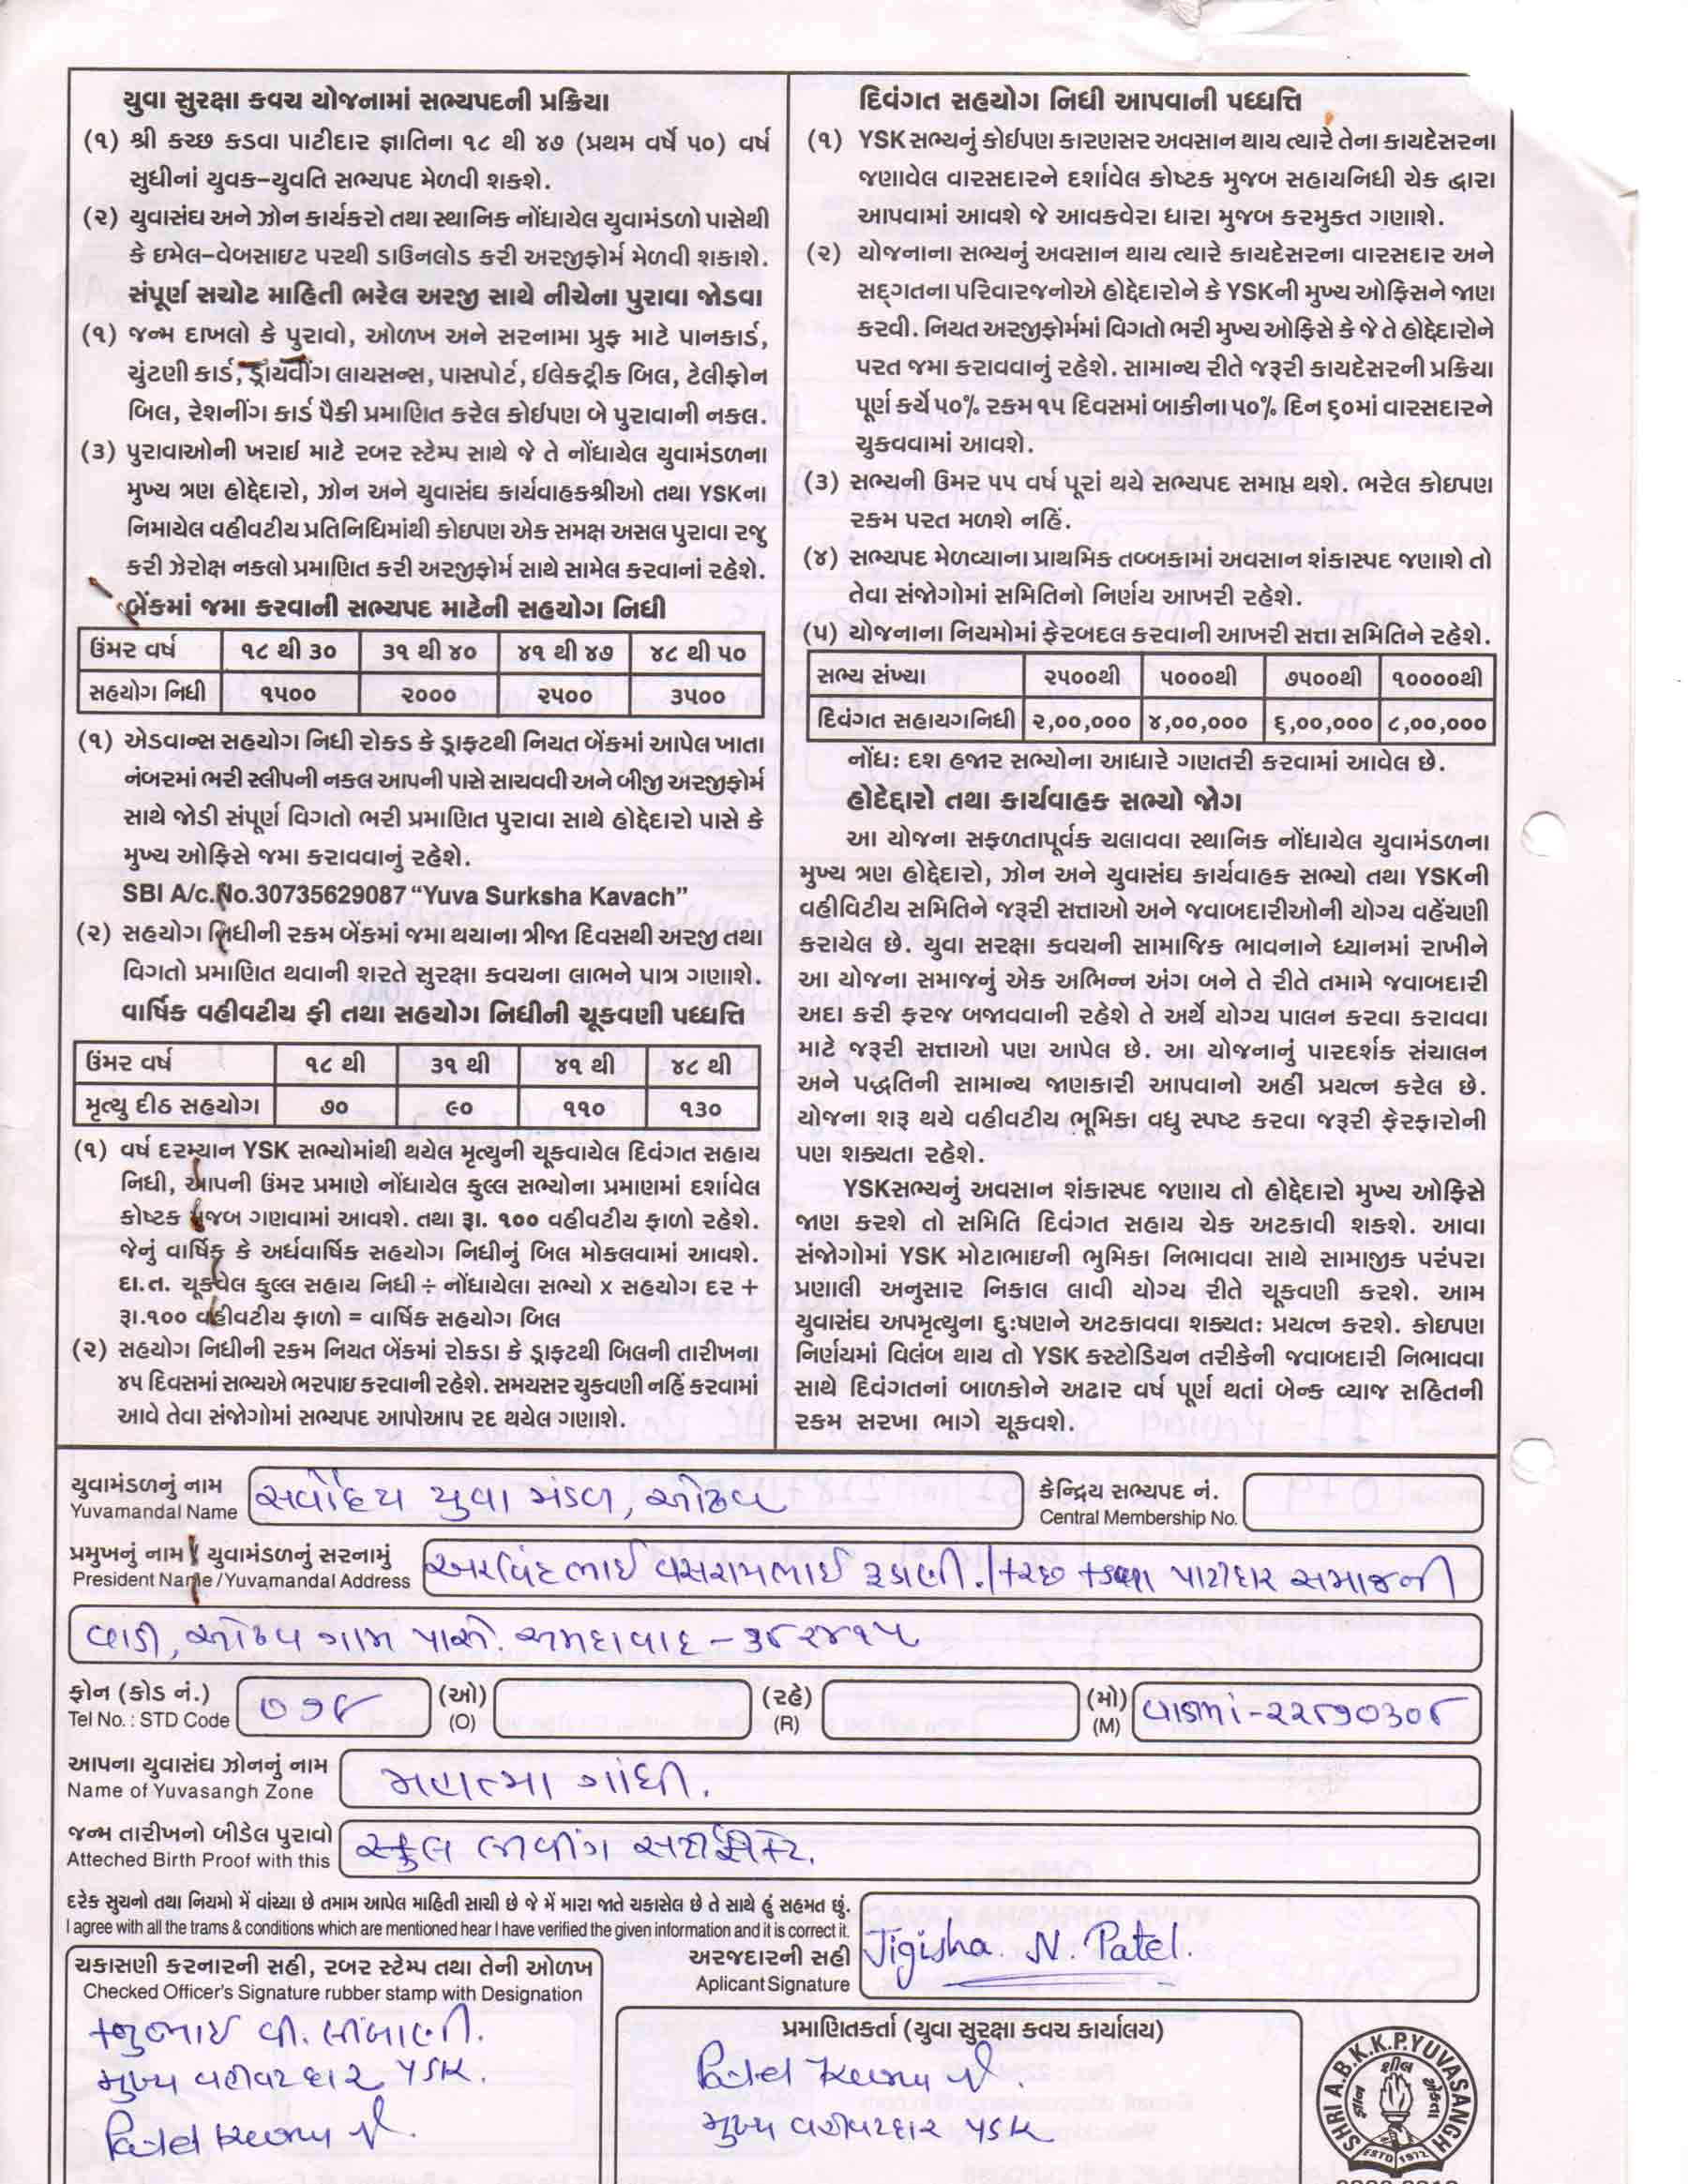 યુવા સુરક્ષા કવચ યોજનામાં સભ્યપદની પ્રક્રિયા
(૧) શ્રી કચ્છ કડવા પાટીદાર જ્ઞાતિના ૧૮ થી ૪૭ (પ્રથમ વર્ષે ૫૦) વર્ષ
સુધીનાં યુવક-યુવતિ સભ્યપદ મેળવી શકશે.
(૨) યુવાસંઘ અને ઝોન કાર્યકરો તથા સ્થાનિક નોંધાયેલ યુવામંડળો પાસેથી
કે ઇમેલ-વેબસાઇટ પરથી ડાઉનલોડ કરી અરજીફોર્મ મેળવી શકાશે.
સંપૂર્ણ સચોટ માહિતી ભરેલ અરજી સાથે નીચેના પુરાવા જોડવા
(૧) જન્મ દાખલો કે પુરાવો, ઓળખ અને સરનામા પ્રુફ માટે પાનકાર્ડ,
ચુંટણી કાર્ડ, ડ્રાયવીંગ લાયસન્સ, પાસપોર્ટ, ઈલેક્ટ્રીક બિલ, ટેલીફોન
બિલ, રેશનીંગ કાર્ડ પૈકી પ્રમાણિત કરેલ કોઈપણ બે પુરાવાની નકલ.
(૩) પુરાવાઓની ખરાઈ માટે રબર સ્ટેમ્પ સાથે જે તે નોંધાયેલ યુવામંડળના
મુખ્ય ત્રણ હોદ્દેદારો, ઝોન અને યુવાસંઘ કાર્યવાહકશ્રીઓ તથા YSKના
નિમાયેલ વહીવટીય પ્રતિનિધિમાંથી કોઇપણ એક સમક્ષ અસલ પુરાવા રજુ
કરી ઝેરોક્ષ નકલો પ્રમાણિત કરી અરજીફોર્મ સાથે સામેલ કરવાનાં રહેશે.
બેંકમાં જમા કરવાની સભ્યપદ માટેની સહયોગ નિધી
ઉંમર વર્ષ ૧૮ થી ૩૦ ૩૧ થી ૪૦ ૪૧ થી ૪૭ ૪૮ થી ૫૦
સહયોગ નિધી ૧૫૦૦ ૨૦૦૦ ૨૫૦૦ ૩૫૦૦
(૧) એડવાન્સ સહયોગ નિધી રોકડ કે ડ્રાફ્ટથી નિયત બેંકમાં આપેલ ખાતા
નંબરમાં ભરી સ્લીપની નકલ આપની પાસે સાચવવી અને બીજી અરજીફોર્મ
સાથે જોડી સંપૂર્ણ વિગતો ભરી પ્રમાણિત પુરાવા સાથે હોદ્દેદારો પાસે કે
મુખ્ય ઓફિસે જમા કરાવવાનું રહેશે.
SBI A/c.No.30735629087 “Yuva Surksha Kavach”
(૨) સહયોગ નિધીની રકમ બેંકમાં જમા થયાના ત્રીજા દિવસથી અરજી તથા
વિગતો પ્રમાણિત થવાની શરતે સુરક્ષા કવચના લાભને પાત્ર ગણાશે.
વાર્ષિક વહીવટીય ફી તથા સહયોગ નિધીની ચૂકવણી પધ્ધતિ
ઉંમર વર્ષ ૧૮ થી ૩૧ થી ૪૧ થી ૪૮ થી
મૃત્યુ દીઠ સહયોગ ૭૦ ૯૦ ૧૧૦ ૧૩૦
(૧) વર્ષ દરમ્યાન YSK સભ્યોમાંથી થયેલ મૃત્યુની ચૂકવાયેલ દિવંગત સહાય
નિધી, આપની ઉંમર પ્રમાણે નોંધાયેલ કુલ્લ સભ્યોના પ્રમાણમાં દર્શાવેલ
કોષ્ટક મુજબ ગણવામાં આવશે. તથા રૂા. ૧૦૦ વહીવટીય ફાળો રહેશે.
જેનું વાર્ષિક કે અર્ધવાર્ષિક સહયોગ નિધીનું બિલ મોકલવામાં આવશે.
દા.ત. ચૂકવેલ કુલ્લ સહાય નિધી ÷ નોંધાયેલા સભ્યો x સહયોગ દર +
રૂા.૧૦૦ વહીવટીય ફાળો = વાર્ષિક સહયોગ બિલ
(૨) સહયોગ નિધીની રકમ નિયત બેંકમાં રોકડા કે ડ્રાફ્ટથી બિલની તારીખના
૪૫ દિવસમાં સભ્યએ ભરપાઇ કરવાની રહેશે. સમયસર ચુકવણી નહિં કરવામાં
આવે તેવા સંજોગોમાં સભ્યપદ આપોઆપ રદ થયેલ ગણાશે.
દિવંગત સહયોગ નિધી આપવાની પધ્ધતિ
(૧) YSK સભ્યનું કોઈપણ કારણસર અવસાન થાય ત્યારે તેના કાયદેસરના
જણાવેલ વારસદારને દર્શાવેલ કોષ્ટક મુજબ સહાયનિધી ચેક દ્વારા
આપવામાં આવશે જે આવકવેરા ધારા મુજબ કરમુકત ગણાશે.
(૨) યોજનાના સભ્યનું અવસાન થાય ત્યારે કાયદેસરના વારસદાર અને
સદ્ગતના પરિવારજનોએ હોદ્દેદારોને કે YSKની મુખ્ય ઓફિસને જાણ
કરવી. નિયત અરજીફોર્મમાં વિગતો ભરી મુખ્ય ઓફિસે કે જે તે હોદ્દેદારોને
પરત જમા કરાવવાનું રહેશે. સામાન્ય રીતે જરૂરી કાયદેસરની પ્રક્રિયા
પૂર્ણ કર્યે ૫૦% રકમ ૧૫ દિવસમાં બાકીના ૫૦% દિન ૬૦માં વારસદારને
ચુકવવામાં આવશે.
(૩) સભ્યની ઉંમર ૫૫ વર્ષ પૂરાં થયે સભ્યપદ સમાપ્ત થશે. ભરેલ કોઇપણ
રકમ પરત મળશે નહિં.
(૪) સભ્યપદ મેળવ્યાના પ્રાથમિક તબ્બકામાં અવસાન શંકાસ્પદ જણાશે તો
તેવા સંજોગોમાં સમિતિનો નિર્ણય આખરી રહેશે.
(૫) યોજનાના નિયમોમાં ફેરબદલ કરવાની આખરી સત્તા સમિતિને રહેશે.
સભ્ય સંખ્યા ૨૫૦૦થી ૫૦૦૦થી ૭૫૦૦થી ૧૦૦૦૦થી
દિવંગત સહાયગનિધી ૨,૦૦,૦૦૦ ૪,૦૦,૦૦૦ ૬,૦૦,૦૦૦ ૮,૦૦,૦૦૦
નોંધ: દશ હજાર સભ્યોના આધારે ગણતરી કરવામાં આવેલ છે.
હોદેદ્દારો તથા કાર્યવાહક સભ્યો જોગ
આ યોજના સફળતાપૂર્વક ચલાવવા સ્થાનિક નોંધાયેલ યુવામંડળના
મુખ્ય ત્રણ હોદ્દેદારો, ઝોન અને યુવાસંઘ કાર્યવાહક સભ્યો તથા YSKની
વહીવિટીય સમિતિને જરૂરી સત્તાઓ અને જવાબદારીઓની યોગ્ય વહેંચણી
કરાયેલ છે. યુવા સરક્ષા કવચની સામાજિક ભાવનાને ધ્યાનમાં રાખીને
આ યોજના સમાજનું એક અભિન્ન અંગ બને તે રીતે તમામે જવાબદારી
અદા કરી ફરજ બજાવવાની રહેશે તે અર્થે યોગ્ય પાલન કરવા કરાવવા
માટે જરૂરી સત્તાઓ પણ આપેલ છે. આ યોજનાનું પારદર્શક સંચાલન
અને પદ્ધતિની સામાન્ય જાણકારી આપવાનો અહીં પ્રયત્ન કરેલ છે.
યોજના શરૂ થયે વહીવટીય ભૂમિકા વધુ સ્પષ્ટ કરવા જરૂરી ફેરફારોની
પણ શક્યતા રહેશે.
YSKસભ્યનું અવસાન શંકાસ્પદ જણાય તો હોદ્દેદારો મુખ્ય ઓફિસે
જાણ કરશે તો સમિતિ દિવંગત સહાય ચેક અટકાવી શકશે. આવા
સંજોગોમાં YSK મોટાભાઇની ભુમિકા નિભાવવા સાથે સામાજીક પરંપરા
પ્રણાલી અનુસાર નિકાલ લાવી યોગ્ય રીતે ચૂકવણી કરશે. આમ
યુવાસંઘ અપમૃત્યુના દુઃષણને અટકાવવા શક્યત: પ્રયત્ન કરશે. કોઇપણ
નિર્ણયમાં વિલંબ થાય તો YSK કસ્ટોડિયન તરીકેની જવાબદારી નિભાવવા
સાથે દિવંગતનાં બાળકોને અઢાર વર્ષ પૂર્ણ થતાં બેન્ક વ્યાજ સહિતની
રકમ સરખા ભાગે ચૂકવશે.
યુવામંડળનું નામ સર્વોદય યુવા મંડળ, ઓઢવ કેન્દ્રિય સભ્યપદ નં.
Yuvamandal Name Central Membership No.
પ્રમુખનું નામ/યુવામંડળનું સરનામું અરવિંદભાઈ વસરામભાઈ રૂડાણી./કચ્છ કડવા પાટીદાર સમાજની
President Name/Yuvamandal Address
વાડી, ઓઢવ ગામ પાસે. અમદાવાદ - ૩૮૨૪૧૫
ફોન (કોડ નં.) ૦૭૯ (ઓ) (રહે) (મો) વાડીમાં-૨૨૮૭૦૩૦૮
Tel No.: STD Code (O) (R) (M)
આપના યુવાસંઘ ઝોનનું નામ મહાત્મા ગાંધી.
Name of Yuvasangh Zone
જન્મ તારીખનો બીડેલ પુરાવો સ્કુલ લીવીંગ સર્ટીફીકેટ.
Atteched Birth Proof with this
દરેક સુચનો તથા નિયમો મેં વાંચ્યા છે તમામ આપેલ માહિતી સાચી છે જે મેં મારા જાતે ચકાસેલ છે તે સાથે હું સહમત છું.
I agree with all the trams & conditions which are mentioned hear I have verified the given information and it is correct it.
અરજદારની સહી Jigisha. N. Patel.
Aplicant Signature
ચકાસણી કરનારની સહી, રબર સ્ટેમ્પ તથા તેની ઓળખ
Checked Officer's Signature rubber stamp with Designation
કનુભાઈ વી. લીંબાણી.
મુખ્ય વહીવટદાર YSK.
પ્રમાણિતકર્તા (યુવા સુરક્ષા કવચ કાર્યાલય)
મુખ્ય વહીવટદાર YSK
SHRI A.B.K.K.P. YUVASANGH
ESTD 1972